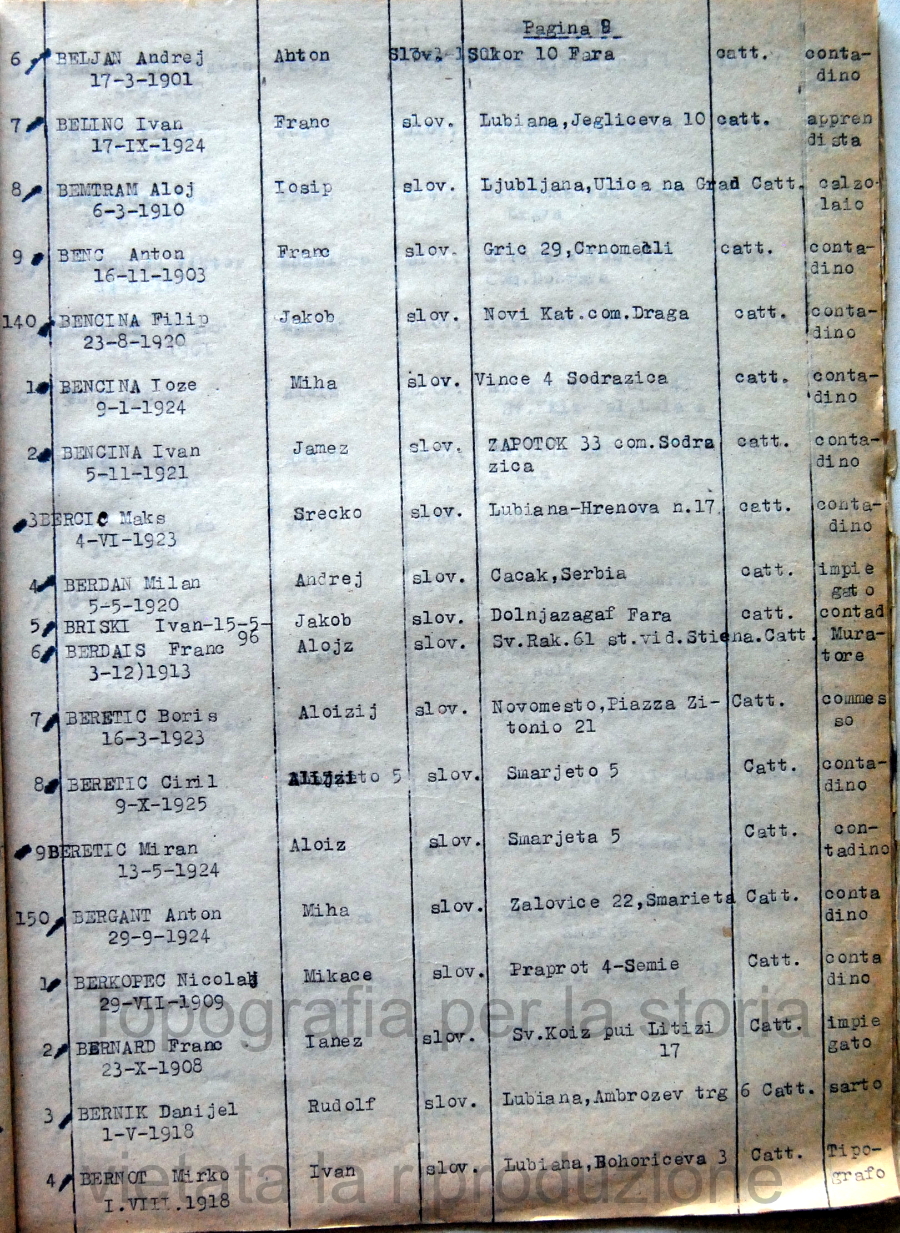 Pagina 8
6 BELJAN Andrej Anton Slov. Sukor 10 Fara catt. conta-
17-3-1901 dino
7 BELINC Ivan Franc slov. Lubiana,Jegliceva 10 catt. appren
17-IX-1924 dista
8 BEMTRAM Aloj Iosip slov. Ljubljana,Ulica na Grad Catt. calzo-
6-3-1910 laio
9 BENC Anton Franc slov. Gric 29,Crnomedli catt. conta-
16-11-1903 dino
140 BENCINA Filip Jakob slov. Novi Kat.com.Draga catt. conta-
23-8-1920 dino
1 BENCINA Ioze Miha slov. Vince 4 Sodrazica catt. conta-
9-1-1924 dino
2 BENCINA Ivan Janez slov. ZAPOTOK 33 com.Sodra catt. conta-
5-11-1921 zica dino
3 BERCIC Maks Srecko slov. Lubiana-Hrenova n.17 catt. conta-
4-VI-1923 dino
4 BERDAN Milan Andrej slov. Cacak,Serbia catt. impie
5-5-1920 gato
5 BRISKI Ivan-15-5- Jakob slov. Dolnjazagaf Fara catt. contad
96
6 BERDAIS Franc Alojz slov. Sv.Rak.61 st.vid.Stiena.Catt. Mura-
3-12)1913 tore
7 BERETIC Boris Aloizij slov. Novomesto,Piazza Zi- Catt. commes
16-3-1923 tonio 21 so
8 BERETIC Ciril to 5 slov. Smarjeto 5 Catt. conta-
9-X-1925 dino
9 BERETIC Miran Aloiz slov. Smarjeta 5 Catt. con-
13-5-1924 tadino
150 BERGANT Anton Miha slov. Zalovice 22,Smarieta Catt. conta
29-9-1924 dino
1 BERKOPEC Nicolaj Mikace slov. Praprot 4-Semie Catt. conta
29-VII-1909 dino
Topografia per la storia
2 BERNARD Franc Ianez slov. Sv.Koiz pui Litizi Catt. impie
23-X-1908 17 gato
3 BERNIK Danijel Rudolf slov. Lubiana,Ambrozev trg 6 Catt. sarto
1-V-1918
4 BERNOT Mirko Ivan slov. Lubiana,Bohoriceva 3 Catt. Tipo-
I.VIII.1918 grafo
vietata la riproduzione